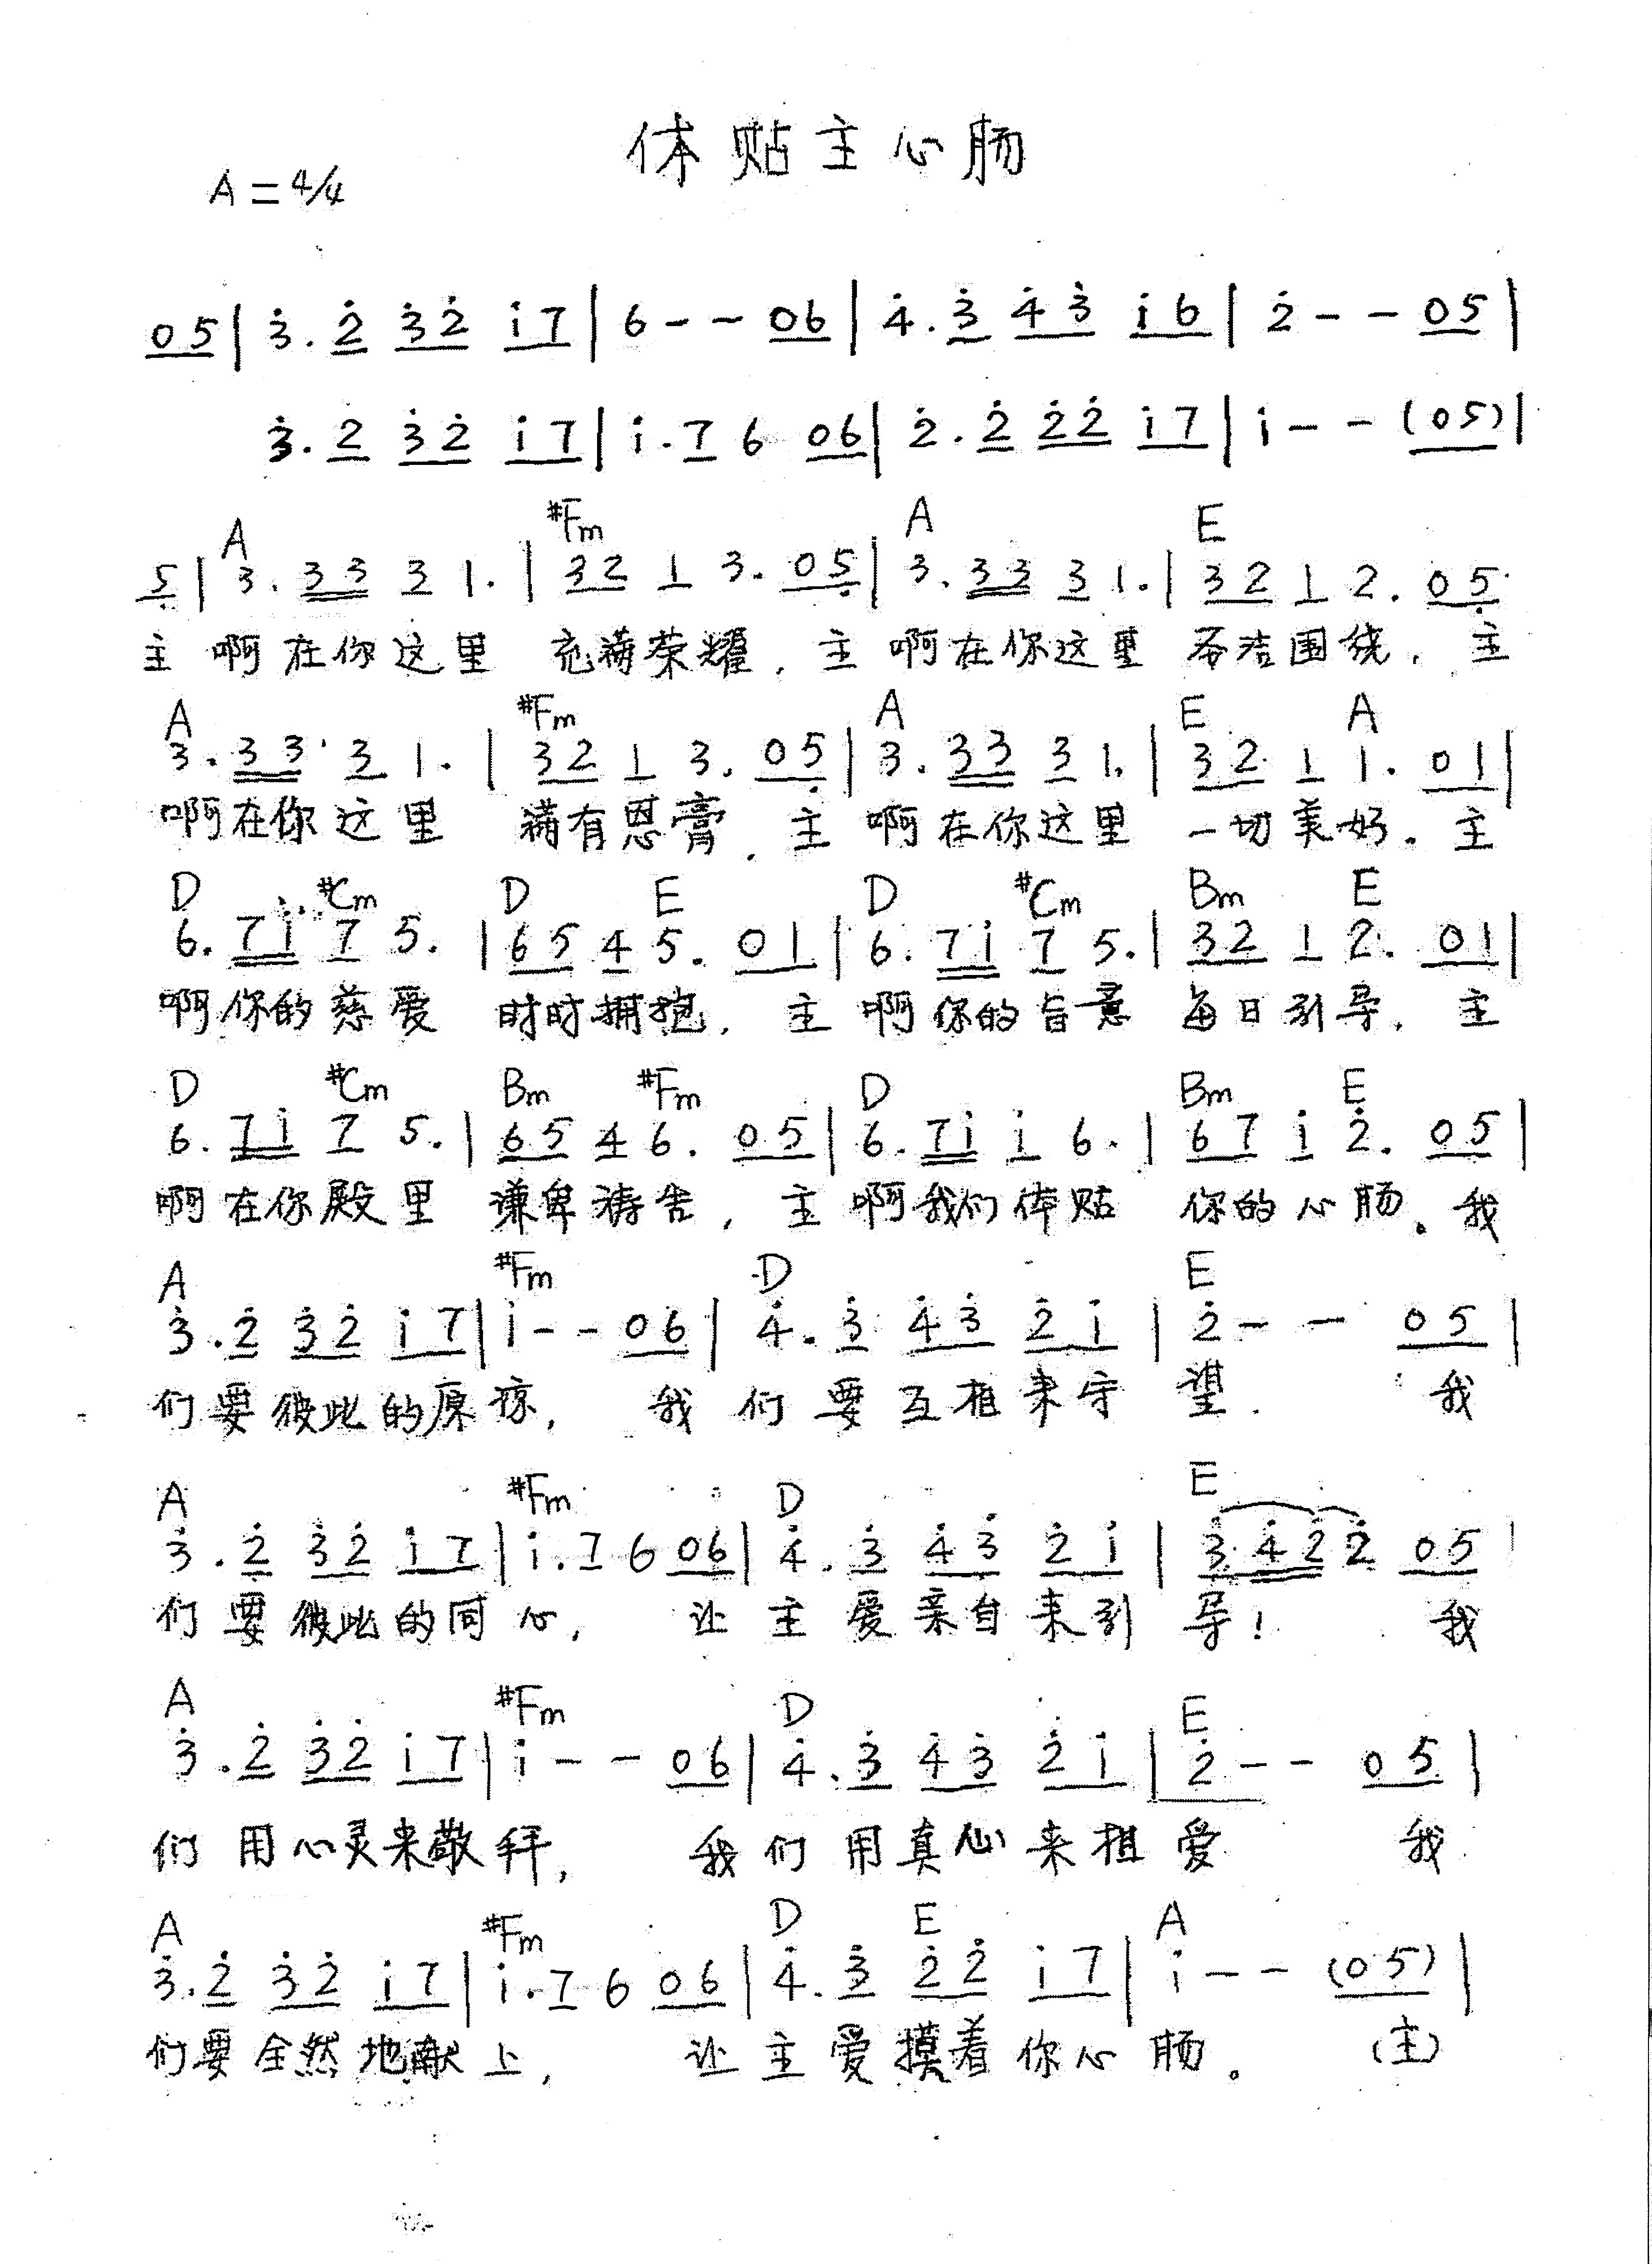 体贴主心肠
A=4/4
05|3̇.2̇ 3̇2̇ i7|6--06|4̇.3̇ 4̇3̇ i6|2̇--05|
3̇.2 3̇2̇ i7|i.76 06|2̇.2̇ 2̇2̇ i7|i--(05)|
A #Fm A E
5̣|3.33 3 1.|32 1 3.05̣|3.33 3 1.|32 1 2.05̣
主 啊在你这里 充满荣耀,主 啊在你这里 圣洁围绕,主
A #Fm A E A
3.33 3 1.|32 1 3.05̣|3.33 3 1.|32 1 1.01|
啊在你这里 满有恩膏,主 啊在你这里 一切美好。主
D #Cm D E D #Cm Bm E
6.7i 7 5.|65 4 5.01|6.7i 7 5.|32 1 2.01|
啊你的慈爱 时时拥抱,主 啊你的旨意 每日引导,主
D #Cm Bm #Fm D Bm E
6.7i 7 5.|65 4 6.05|6.7i i 6.|67 i 2̇.05|
啊在你殿里 谦卑祷告,主 啊我们体贴 你的心肠。我
A #Fm D E
3̇.2̇ 3̇2̇ i7|i--06|4̇.3̇ 4̇3̇ 2̇i|2̇--05|
们要彼此的原谅, 我们要互相来守望. 我
A #Fm D E
3̇.2̇ 3̇2̇ i7|i.76 06|4̇.3̇ 4̇3̇ 2̇i|3̇.4̇2̇2̇ 05|
们要彼此的同心, 让主爱亲自来引导! 我
A #Fm D E
3̇.2̇ 3̇2̇ i7|i--06|4̇.3̇ 4̇3̇ 2̇i|2̇--05|
们用心灵来敬拜, 我们用真心来相爱 我
A #Fm D E A
3̇.2̇ 3̇2̇ i7|i.76 06|4̇.3̇ 2̇2̇ i7|i--(05)|
们要全然地献上, 让主爱摸着你心肠。 (主)